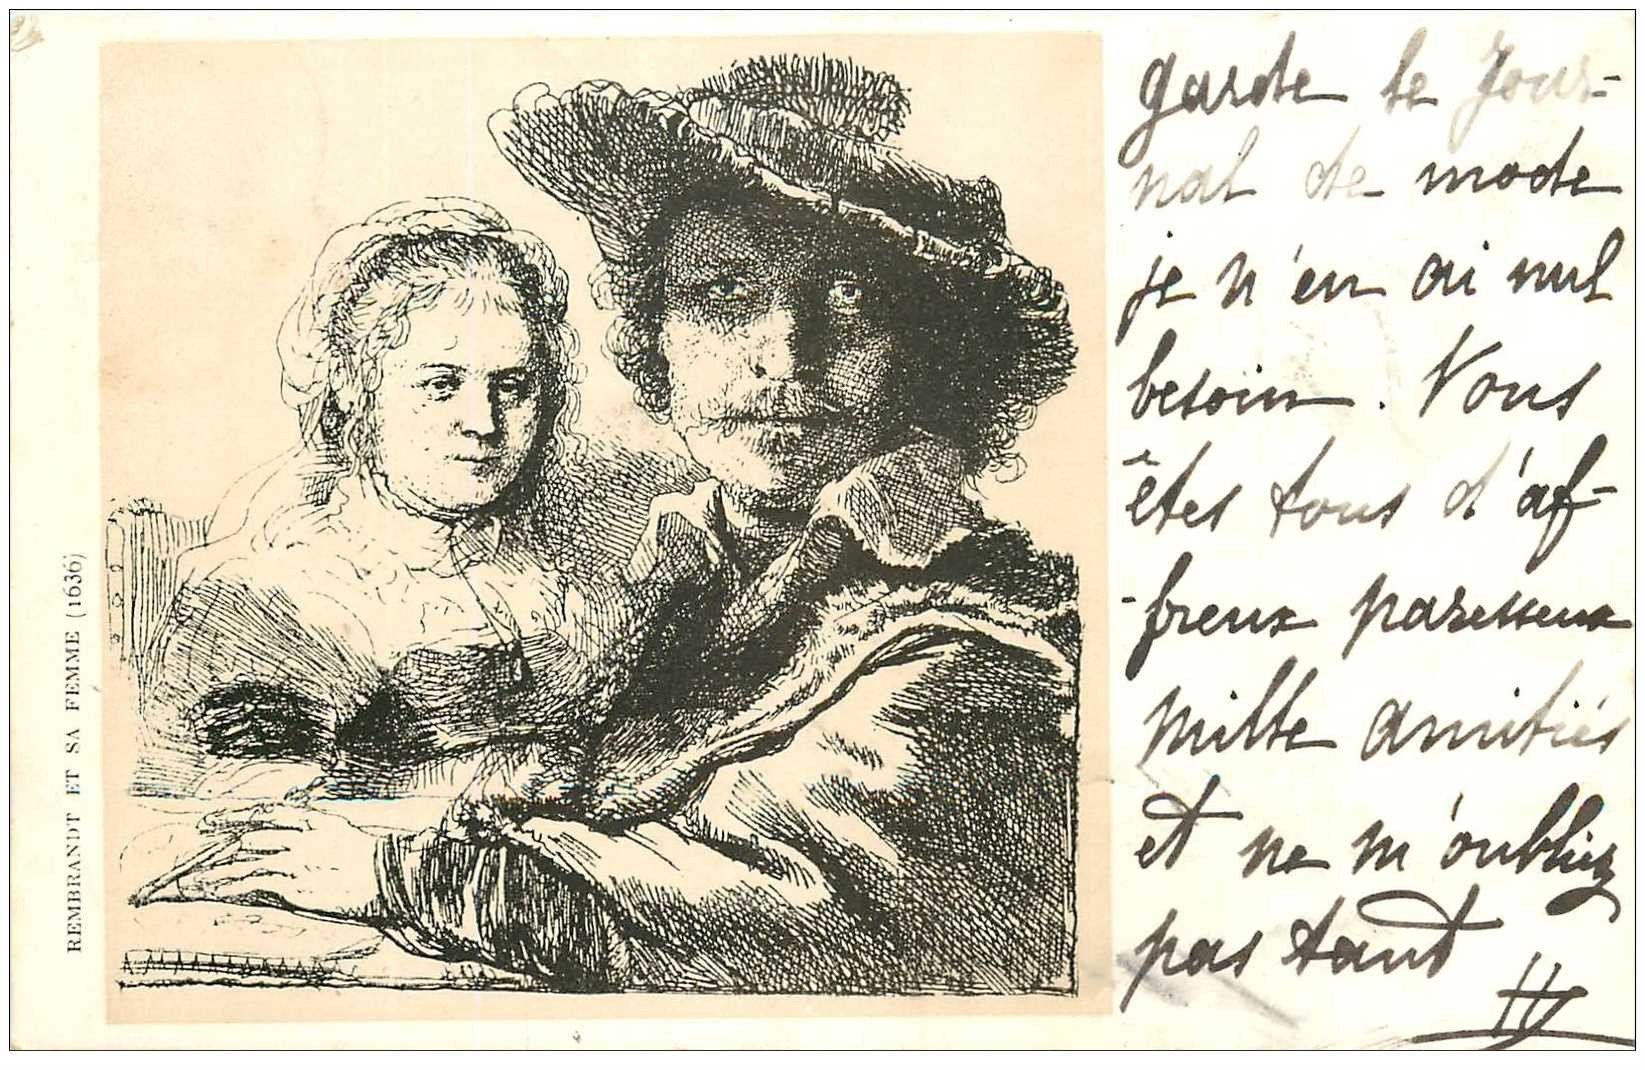 REMBRANDT ET SA FEMME (1636)
garde le Jour-
nal de mode
je n'en ai nul
besoin. Vous
êtes tous d'af-
-freux paresseux
mille amitiés
et ne m'oubliez
pas tant